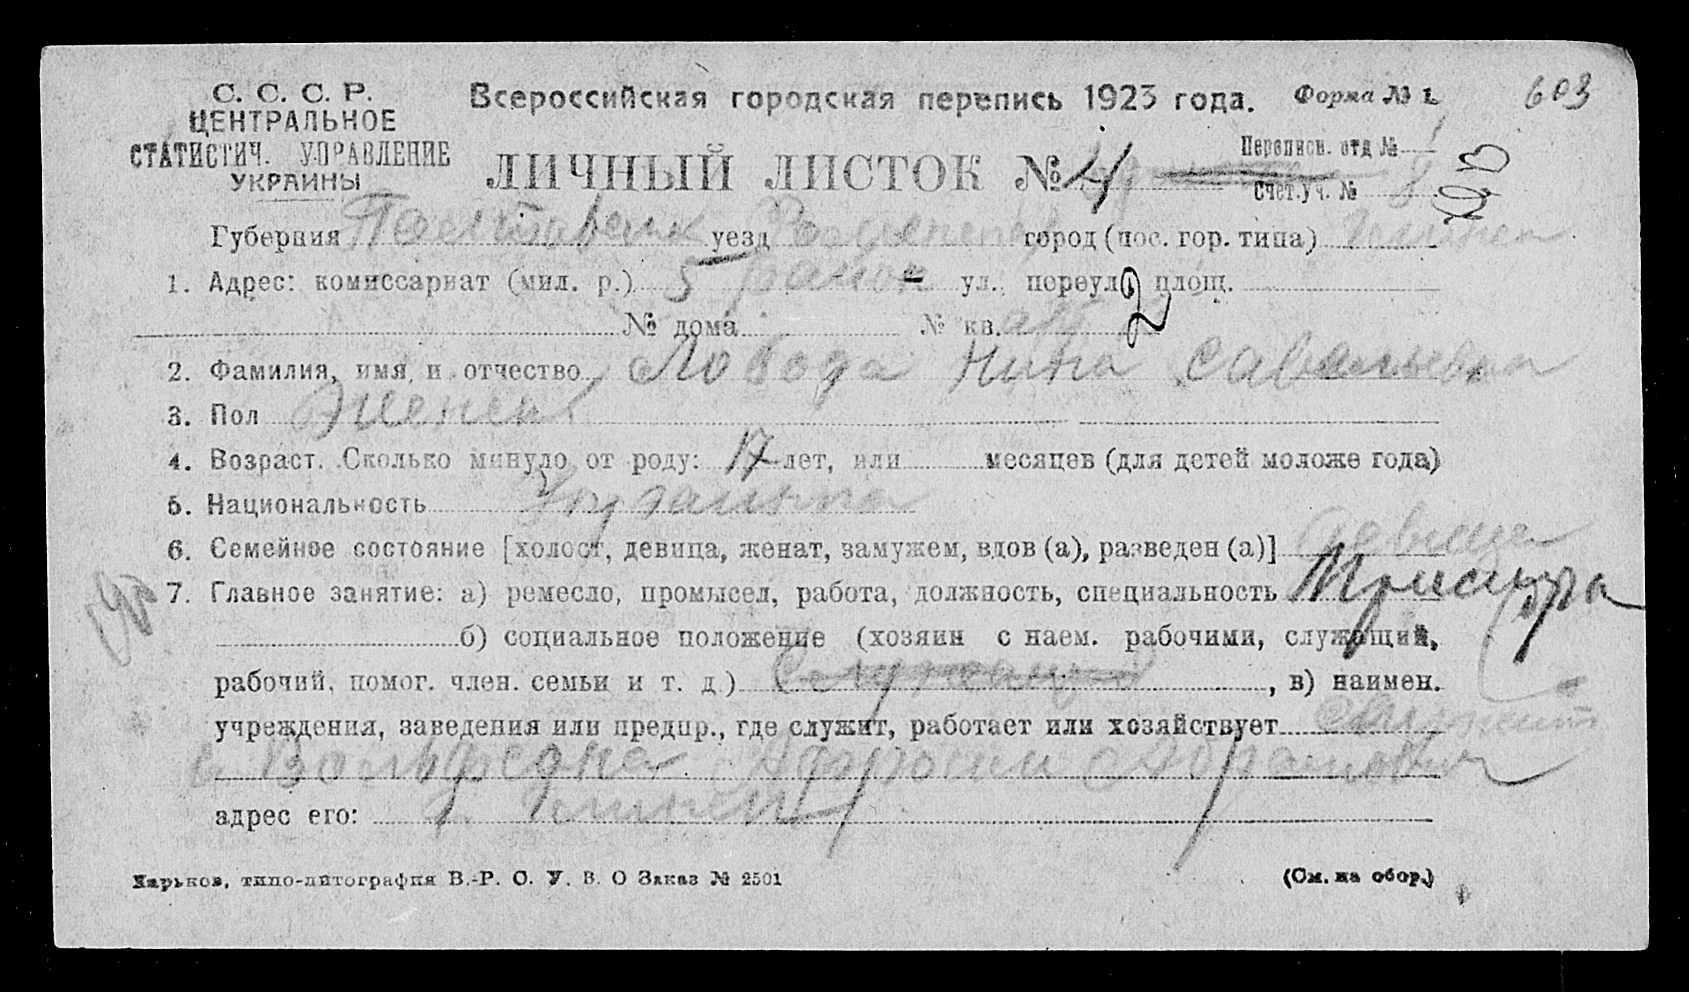 С. С. С. Р.
ЦЕНТРАЛЬНОЕ
СТАТИСТИЧ. УПРАВЛЕНИЕ
УКРАИНЫ
Всероссийская городская перепись 1923 года.
Форма № 1.
603
ЛИЧНЫЙ ЛИСТОК № 4
Переписн. отд №
Счет.уч. №
Губерния Полтавск уезд город (пос. гор. типа)
1. Адрес: комиссариат (мил. р.) 5 район ул., переул., площ.
№ дома № кв.
2. Фамилия, имя, и отчество Лобода Нина Савельевна
3. Пол Женск
4. Возраст. Сколько минуло от роду: 17 лет, или месяцев (для детей моложе года)
5. Национальность Украинка
6. Семейное состояние [холост, девица, женат, замужем, вдов (а), разведен (а)] девица
7. Главное занятие: а) ремесло, промысел, работа, должность, специальность Прислуга
б) социальное положение (хозяин с наем. рабочими, служащий,
рабочий, помог. член. семьи и т. д.) Служащий, в) наимен.
учреждения, заведения или предпр., где служит, работает или хозяйствует служит
Абрамович
адрес его: г.
Харьков, типо-литография В.-Р. С. У. В. О Заказ № 2501
(См. на обор.)